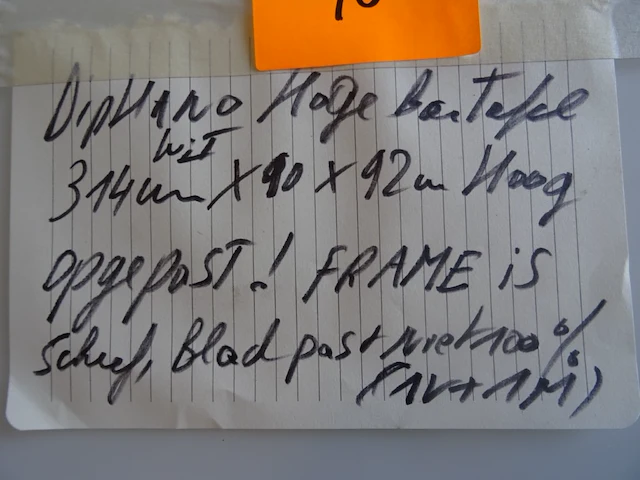 Diphano Hoge Bartafel
wit
314cm x 90 x 92cm Hoog
opgepast! FRAME is
scheef, Blad past niet 100%
(1V+1M)